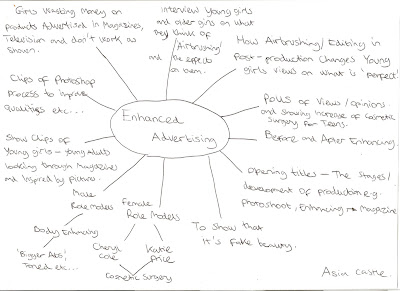 'Girls Wasting Money on
products Advertised in Magazines,
Television and don't work as
shown.
interview Young girls
and older girls on what
they thinks of
'Airbrushing'
and the effects
on them.
How Airbrushing/Editing in
Post-production Changes Young
girls views on what is 'perfect'.
Clips of Photoshop
process to improve
qualities etc...
Enhanced
Advertising
Polls of Views/opinions.
and showing increase of Cosmetic
Surgery for Teens.
Before and After Enhancing.
Show Clips of
Young girls - young Adults
looking through Magazines
and Inspired by picture.
Opening titles - The Stages/
development of production e.g.
photoshoot, Enhancing → Magazine
Male
Role Models
Female
Role Models
To show that
it's fake beauty.
Body Enhancing
Cheryl
Cole
Katie
Price
'Bigger Abs',
Toned etc...
Cosmetic Surgery
Asia Castle